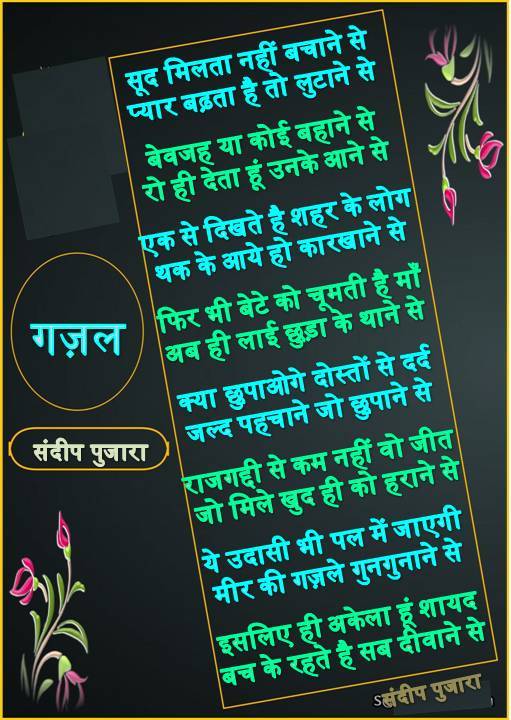 सूद मिलता नहीं बचाने से
प्यार बढ़ता है तो लुटाने से
बेवजह या कोई बहाने से
रो ही देता हूं उनके आने से
एक से दिखते है शहर के लोग
थक के आये हो कारखाने से
फिर भी बेटे को चूमती है माँ
अब ही लाई छुड़ा के थाने से
क्या छुपाओगे दोस्तों से दर्द
जल्द पहचाने जो छुपाने से
राजगद्दी से कम नहीं वो जीत
जो मिले खुद ही को हराने से
ये उदासी भी पल में जाएगी
मीर की गज़ले गुनगुनाने से
इसलिए ही अकेला हूं शायद
बच के रहते है सब दीवाने से
गज़ल
संदीप पुजारा
संदीप पुजारा